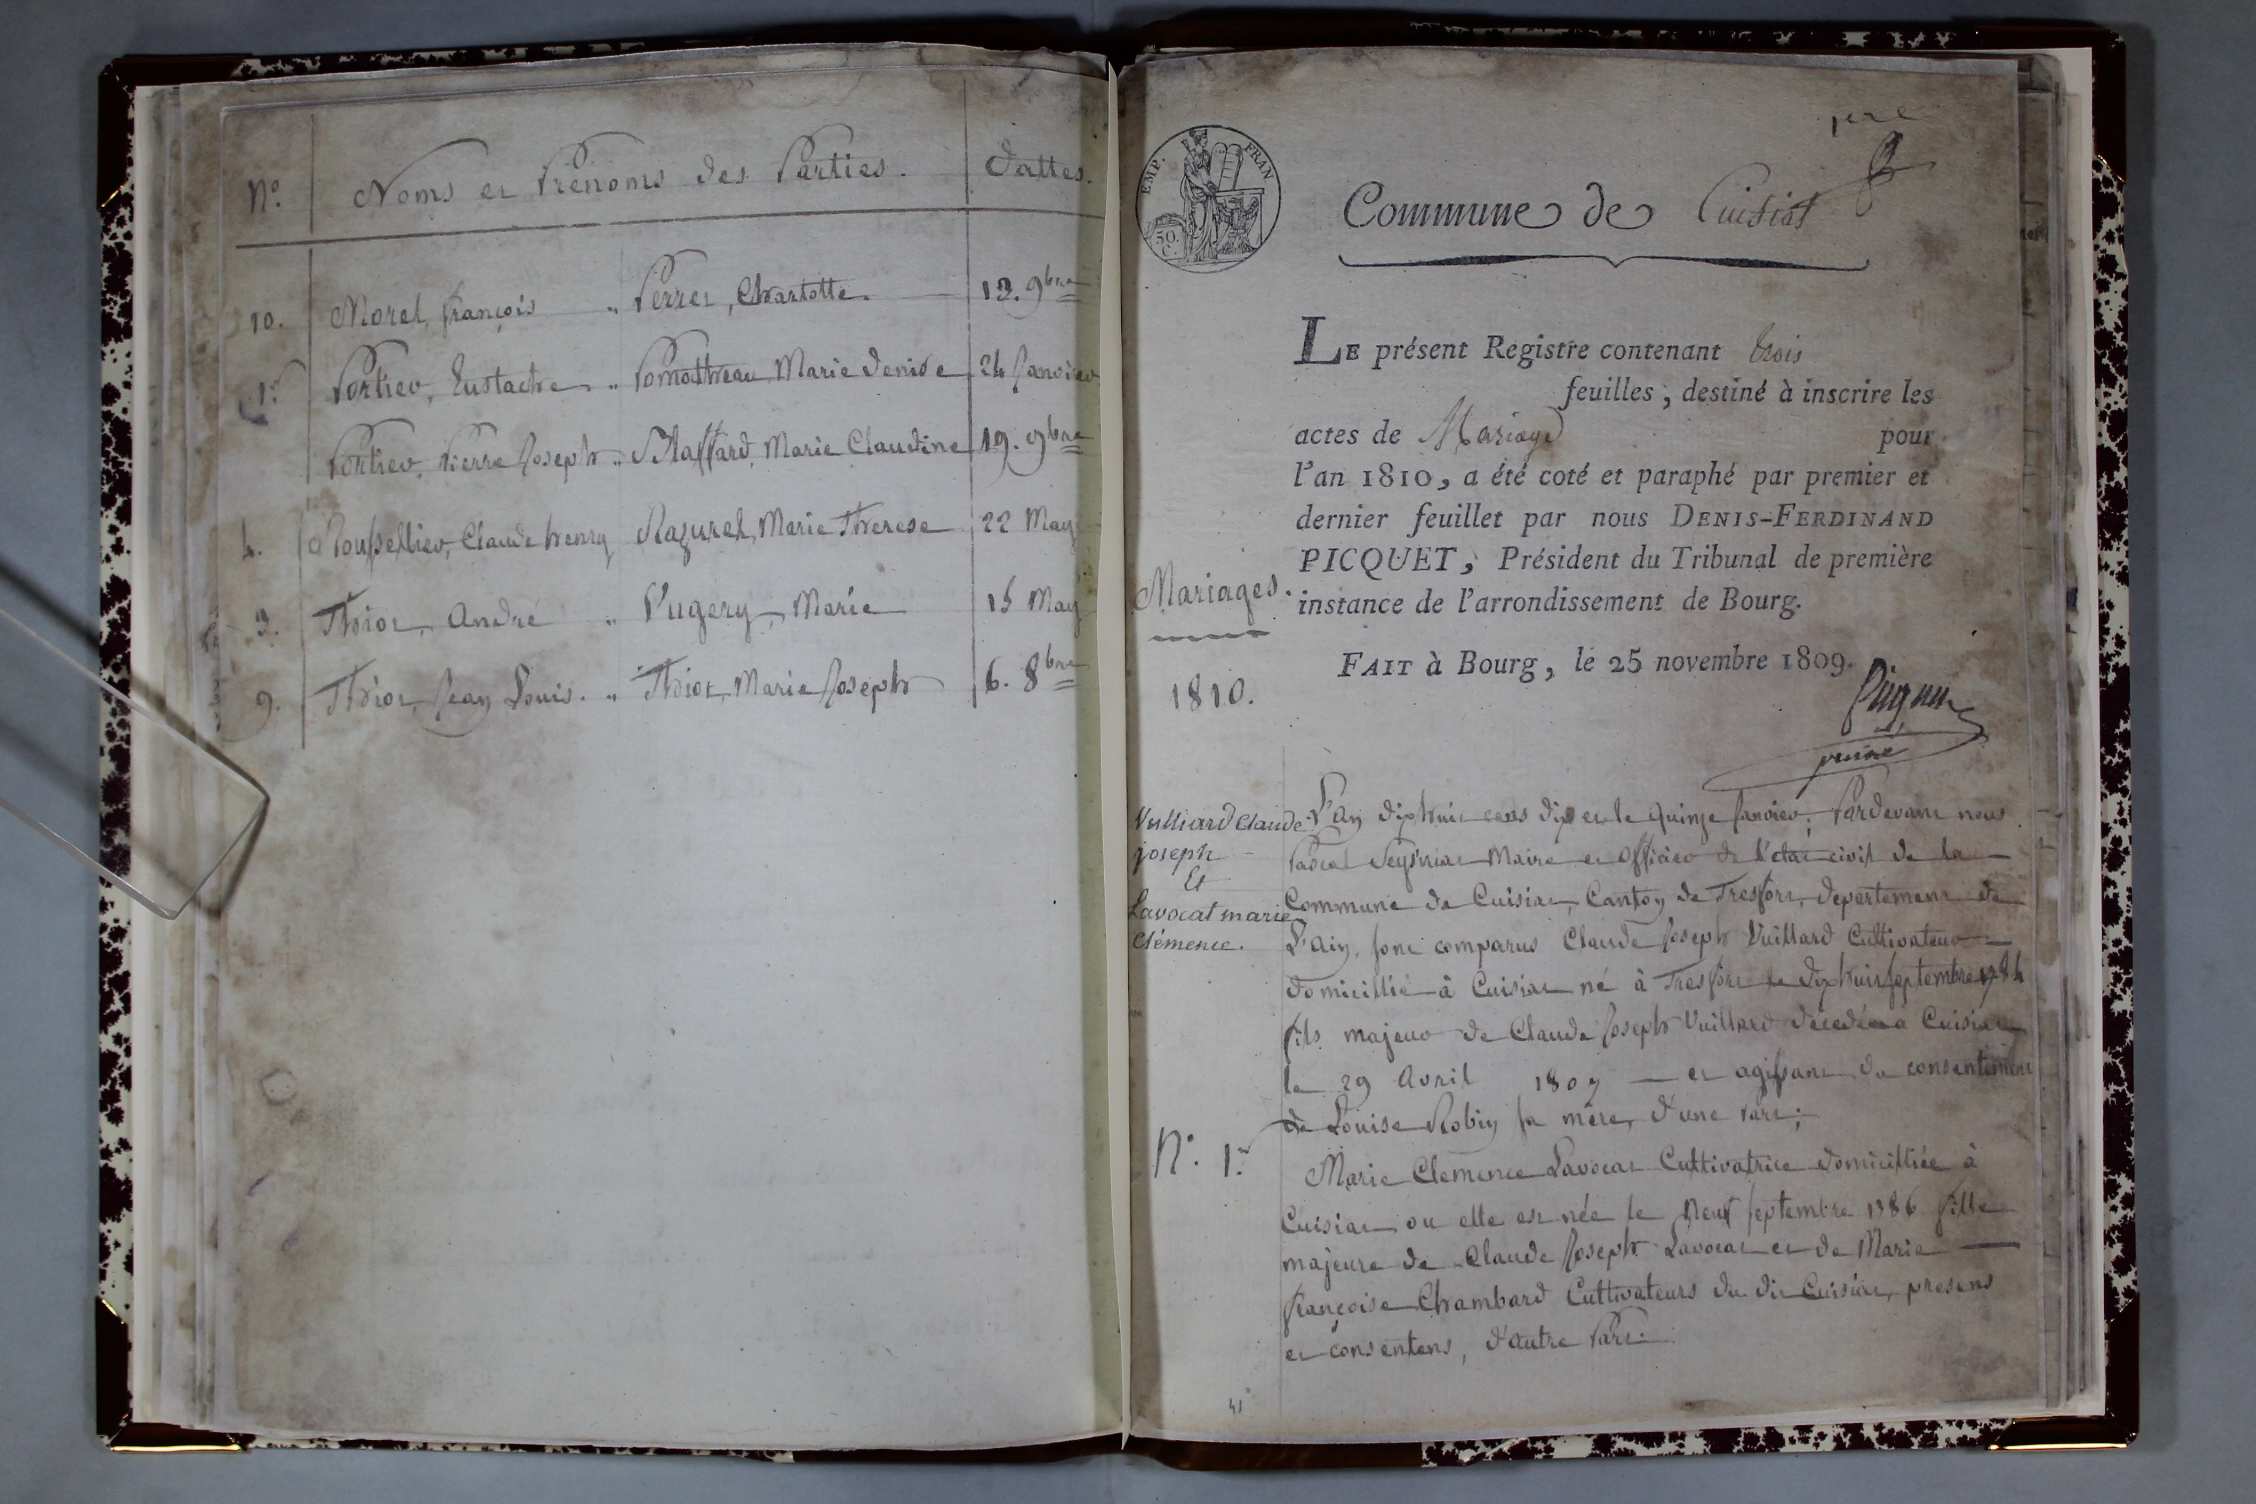 N.º Noms et Prénoms des Parties. Dattes.
10. Morel, françois „ Perret, Charlotte. 13. 9bre
1.r Portier, Eustache „ Pomathreau Marie denise 24 Janvier
Portier, Pierre Joseph „ Maffard, Marie Claudine 19. 9bre
4. Roussellier, Claude henry Ragurel, Marie Therese 22 May
3. Thiot, André „ Pugery, Marie 15 May
9. Thiot, Jean Louis. „ Thiot, Marie Joseph 6. 8bre
EMP. FRAN
50.
C.
Commune de Cuisiat
LE présent Registre contenant trois
feuilles, destiné à inscrire les
actes de Mariage pour
l'an 1810, a été coté et paraphé par premier et
dernier feuillet par nous DENIS-FERDINAND
PICQUET, Président du Tribunal de première
instance de l'arrondissement de Bourg.
FAIT à Bourg, le 25 novembre 1809.
Mariages.
1810.
Vulliard Claude
joseph
Et
Lavocat marie
Clémence.
N.º 1.r
L'an dixhuit cens dix et le quinze Janvier, Pardevant nous
Pascal Maire et officier de l'etat civil de la
Commune de Cuisiat, Canton de Tresfort, departement de
L'ain, sont comparus Claude Joseph Vuillard Cultivateur
domicillié à Cuisiat né à Tresfort le dixhuit septembre 1784
fils majeur de Claude Joseph Vuillard décedé a Cuisiat
le 29 Avril 1807 et agissant du consentement
de Louise Robin sa mère, d'une part;
Marie Clemence Lavocat Cultivatrice domicilliée à
Cuisiat ou elle est née le Neuf septembre 1786 fille
majeure de Claude Joseph Lavocat et de Marie
françoise Chambard Cultivateurs du dit Cuisiat, presens
et consentens, d'autre Part.